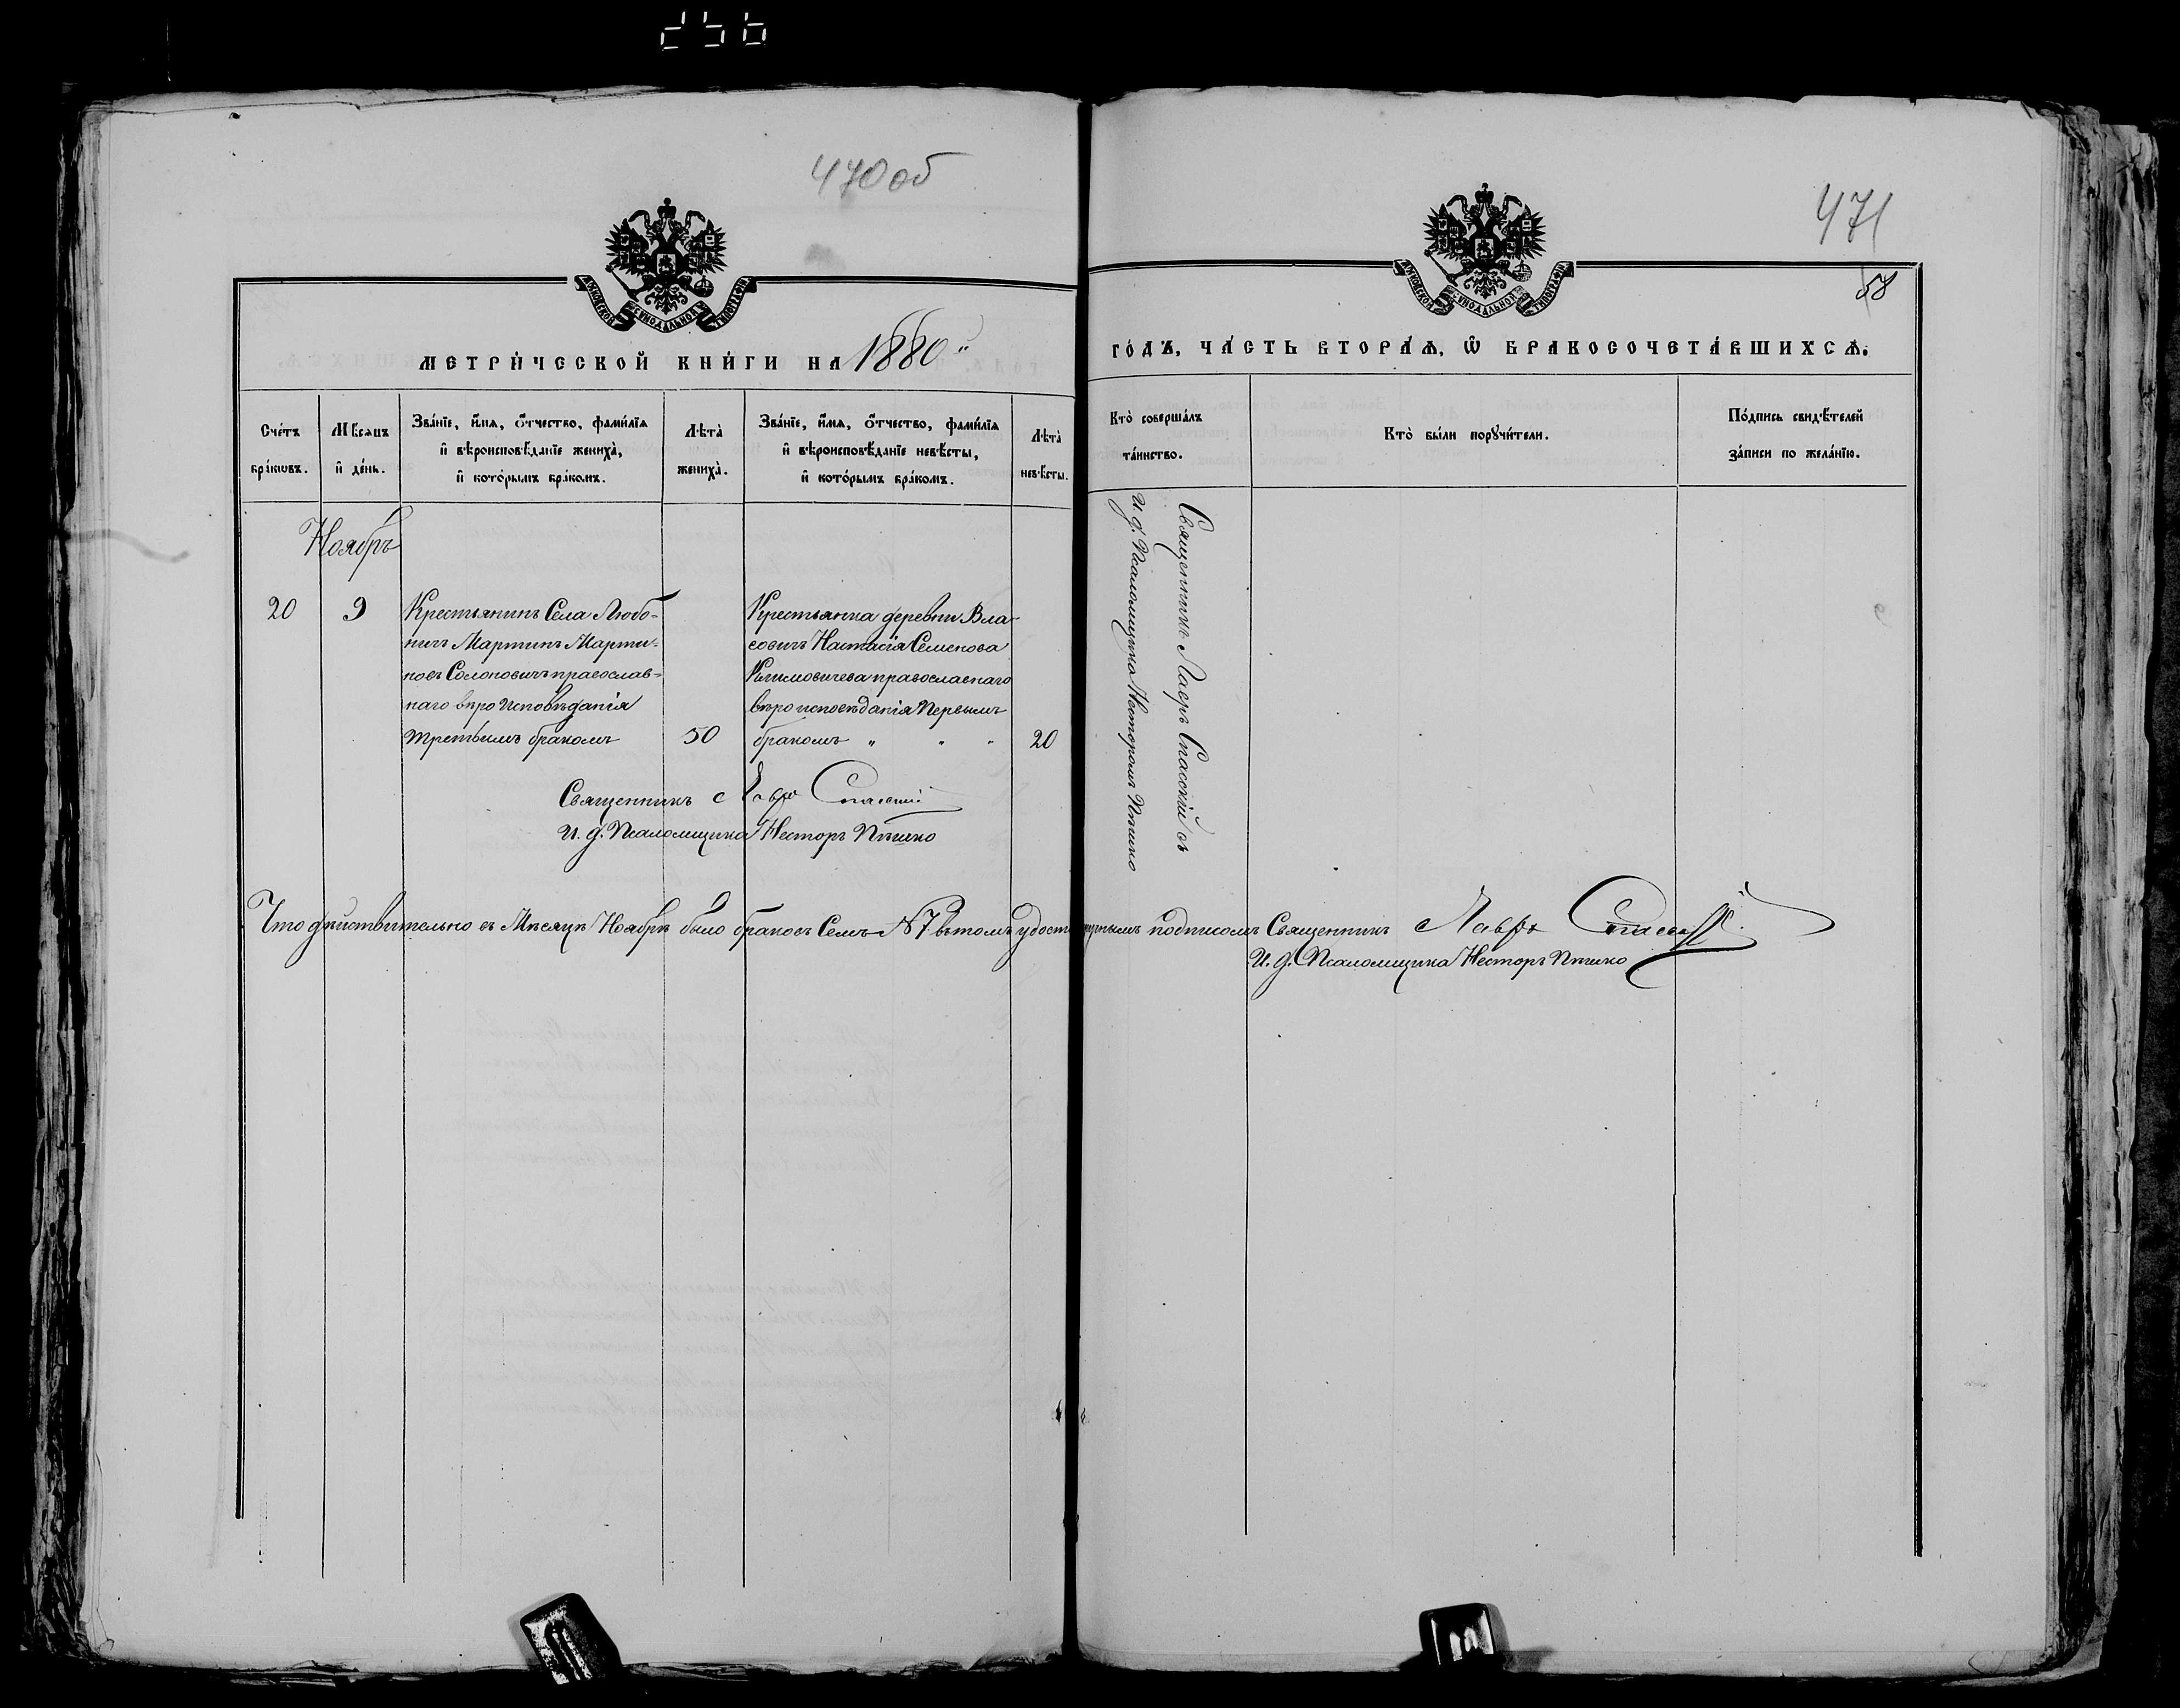 256
470 об
471
58
МОСКОВСКОЙ СѴНОДАЛЬНОЙ ТИПОГРАФІИ
МОСКОВСКОЙ СѴНОДАЛЬНОЙ ТИПОГРАФІИ
МЕТРИ́ЧЕСКОЙ КНИ́ГИ НА 1880й
ГО́ДЪ, ЧА́СТЬ ВТОРА́Ѧ, Ѽ БРАКОСОЧЕТА́ВШИХСѦ.
Сче́тъ
бра́кωвъ.
Мѣ́сѧцъ
и҆ де́нь.
Зва́нїе, и҆́мѧ, ѻ҆́тчество, фами́лїѧ
и҆ вѣроисповѣ́данїе жениха̀,
и҆ кото́рымъ бра́комъ.
Лѣ́та̀
жениха̀.
Зва́нїе, и҆́мѧ, ѻ҆́тчество, фами́лїѧ
и҆ вѣроисповѣ́данїе невѣ́сты,
и҆ кото́рымъ бра́комъ.
Лѣ́та̀
невѣ́сты.
Кто̀ соверша́лъ
та́инство.
Кто̀ бы́ли порꙋчи́тели.
По́дпись свидѣ́телей
за́писи по жела́нїю.
Ноябрь
20
9
Крестьянинъ Села Любо-
ничъ Мартинъ Марти-
новъ Солоновичъ православ-
наго вѣро Исповѣданія
третьимъ бракомъ
50
Крестьянка деревни Вла-
совичъ Настасія Семенова
Климовичева православнаго
вѣроисповѣданія Первымъ
бракомъ " " "
20
Священникъ Лавръ Спасскій съ
и. д. Псаломщика Несторомъ Пѣшко
Священникъ Лавръ Спасскій
И. д. Псаломщика Несторъ Пѣшко
Что дѣйствительно въ Мѣсяцѣ Ноябрѣ было браковъ Семь № 7 вътомъ подписомъ Священникъ Лавръ Спасскій
И. д. Псаломщика Несторъ Пѣшко